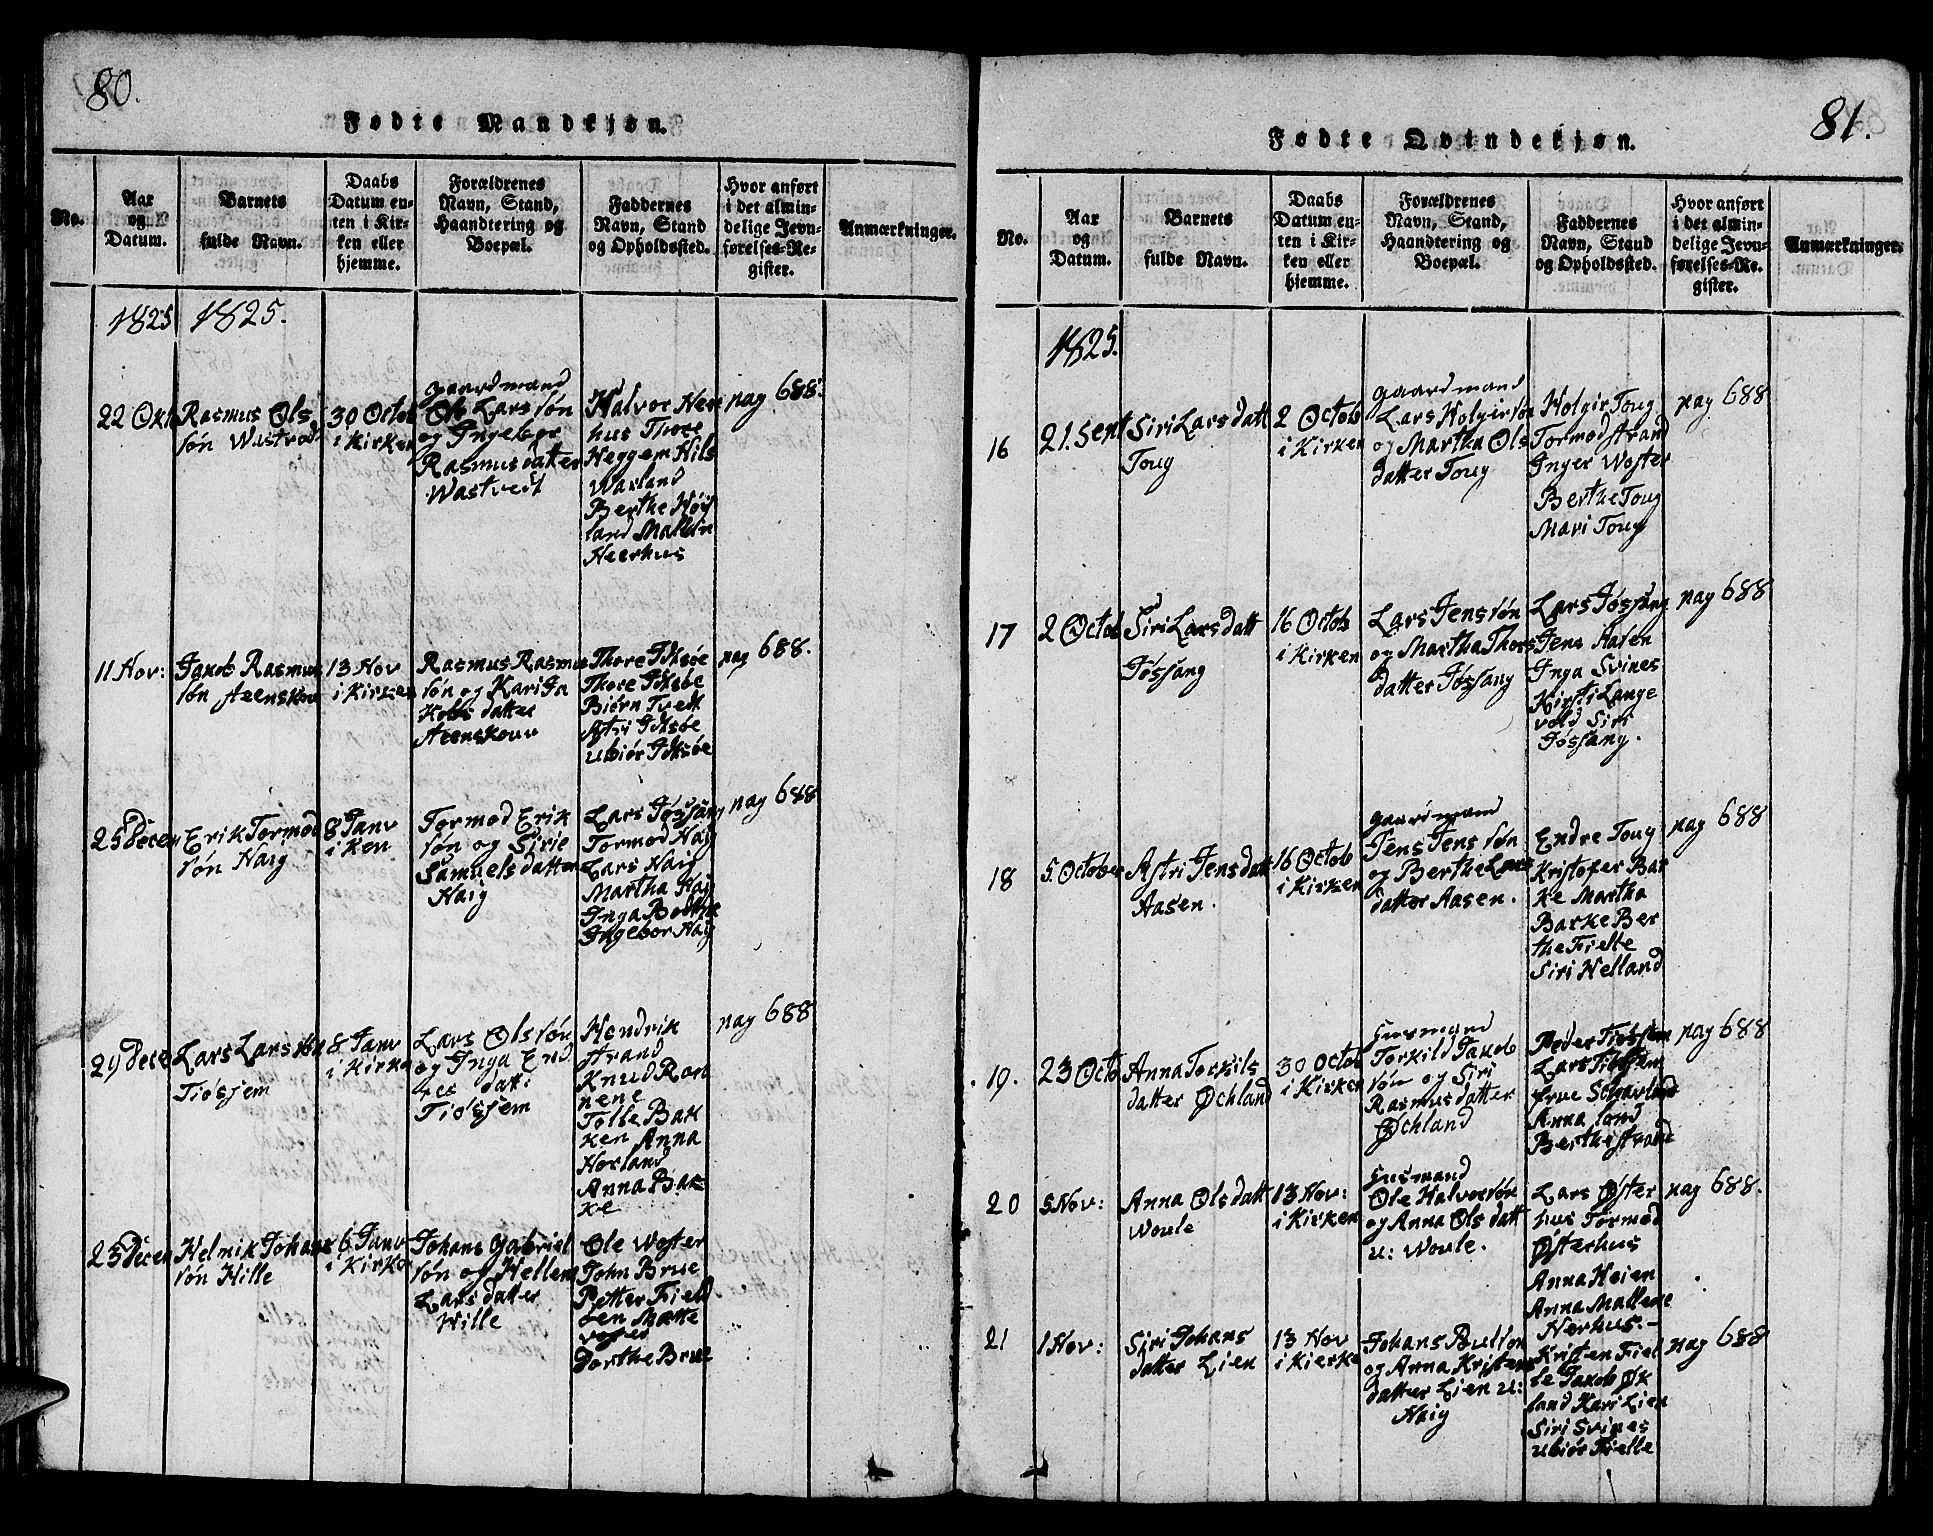 80.
Fødte Mandkjøn.
No.
Aar
og
Datum.
Barnets
fulde Navn.
Daabs
Datum en-
ten i Kir-
ken eller
hjemme.
Forældrenes
Navn, Stand,
Haandtering og
Boepæl.
Faddernes
Navn, Stand
og Opholdssted.
Hvor anført
i det almin-
delige Jevn-
førelses-Re-
gister.
Anmærkninger.
1825
1825.
22 Okt
Rasmus Ols
søn Wastvedt
30 Octob
i Kirken
gaardmand
Ole Larssøn
og Ingebor
Rasmusdatter
Wastvedt
Halvor Neer
hus Thore
Heggem Nils
Warland
Berthe Høy
land Malen
Neerhus
pag 688.
11 Nov:
Jakob Rasmus
søn Steenskouv
13 Nov
i Kirken
Rasmus Rasmus
søn og Kari Ja
kobs datter
Steenskouv
Thore Idksøe
Thore Idksøe
Biørn Tvedt
Astri Idksøe
ubiør Idksøe
pag 688.
25 Decem
Erik Tormod
søn Haig
8 Janv
i Ken
Tormod Erik
søn og Sirie
Samuelsdatter
Haig
Lars Jøssang
Tormod Haig
Lars Haig
Martha Haig
Inga
Ingebor Haig
pag 688
29 Decem
Lars Larssøn
Tiøssem
8 Janv
i Kirke
Lars Olssøn
og Inga End
res datt:
Tiøssem
Hendrik
strand
Knud Ron
nene
Tolle Bak
ken Anna
Horland
Anna Bak
ke
pag 688
23 Decem
Helmik Johans
søn Hille
6 Janv
i Kirke
Johans Gabriel
søn og Hellem
Lars datter
Hille
Ole Wester
John Brue
Petter Field
øen Mette
Dorthe Brue
81.
Fødte Qvindekjøn.
No.
Aar
og
Datum.
Barnets
fulde Navn.
Daabs
Datum en-
ten i Kir-
ken eller
hjemme.
Forældrenes
Navn, Stand,
Haandtering og
Boepæl.
Faddernes
Navn, Stand
og Opholdssted.
Hvor anført
i det almin-
delige Jevn-
førelses-Re-
gister.
Anmærkninger.
1825.
16
21. Sept
Siri Larsdatt
Toug
2 Octob
i Kirken
gaardmand
Lars Holgirsøn
og Martha Ols
datter Toug
Holgir Toug
Tormod strand
Inger Wester
Berthe Toug
Mari Toug
pag 688
17
2 Octob
Siri Larsdatt
Jøssang
16 Octob
i Kirken
Lars Jenssøn
og Martha Thors
datter Jøssang
Lars Jøssang
Jens Aasen
Inga Svines
Kirsti Lange
vold Siri
Jøssang.
pag 688
18
5 October
Astri Jensdatt
Aasen.
16 Octob
i Kirken
gaardmand
Jens Jenssøn
og Berthe Lars
datter Aasen.
Endre Toug
Kristofer Bar
ke Martha
Barke Ber
the Fielte
Siri Helland
pag 688
19.
23 Octo
Anna Torkils
datter Øchland
30 Octob
i Kirken
Husmand
Torkild Jakob
søn og Siri
Rasmusdatter
Øchland
Peder Tiøssem
Lars Tiøssem
frue
Anna land
Berthe strand
pag 688
20
5 Nov:
Anna Olsdatt
Woule
13 Nov:
i Kirken
Husmand
Ole Halvorsøn
og Anna Olsdatt
u: Woule.
Lars Øster
hus Tormod
Østerhus
Anna Heien
Anna Mallene
Nerhus.-
pag 688.
21
1 Nov:
Siri Johans
datter Lien
13 Nov
i Kierke
Johans
og Anna Kristens
datter Lien u:
Haig
Kristen Fiel
le Jakob Øk
land Kari Lien
Siri Svines
ubiør Fielle
pag 688